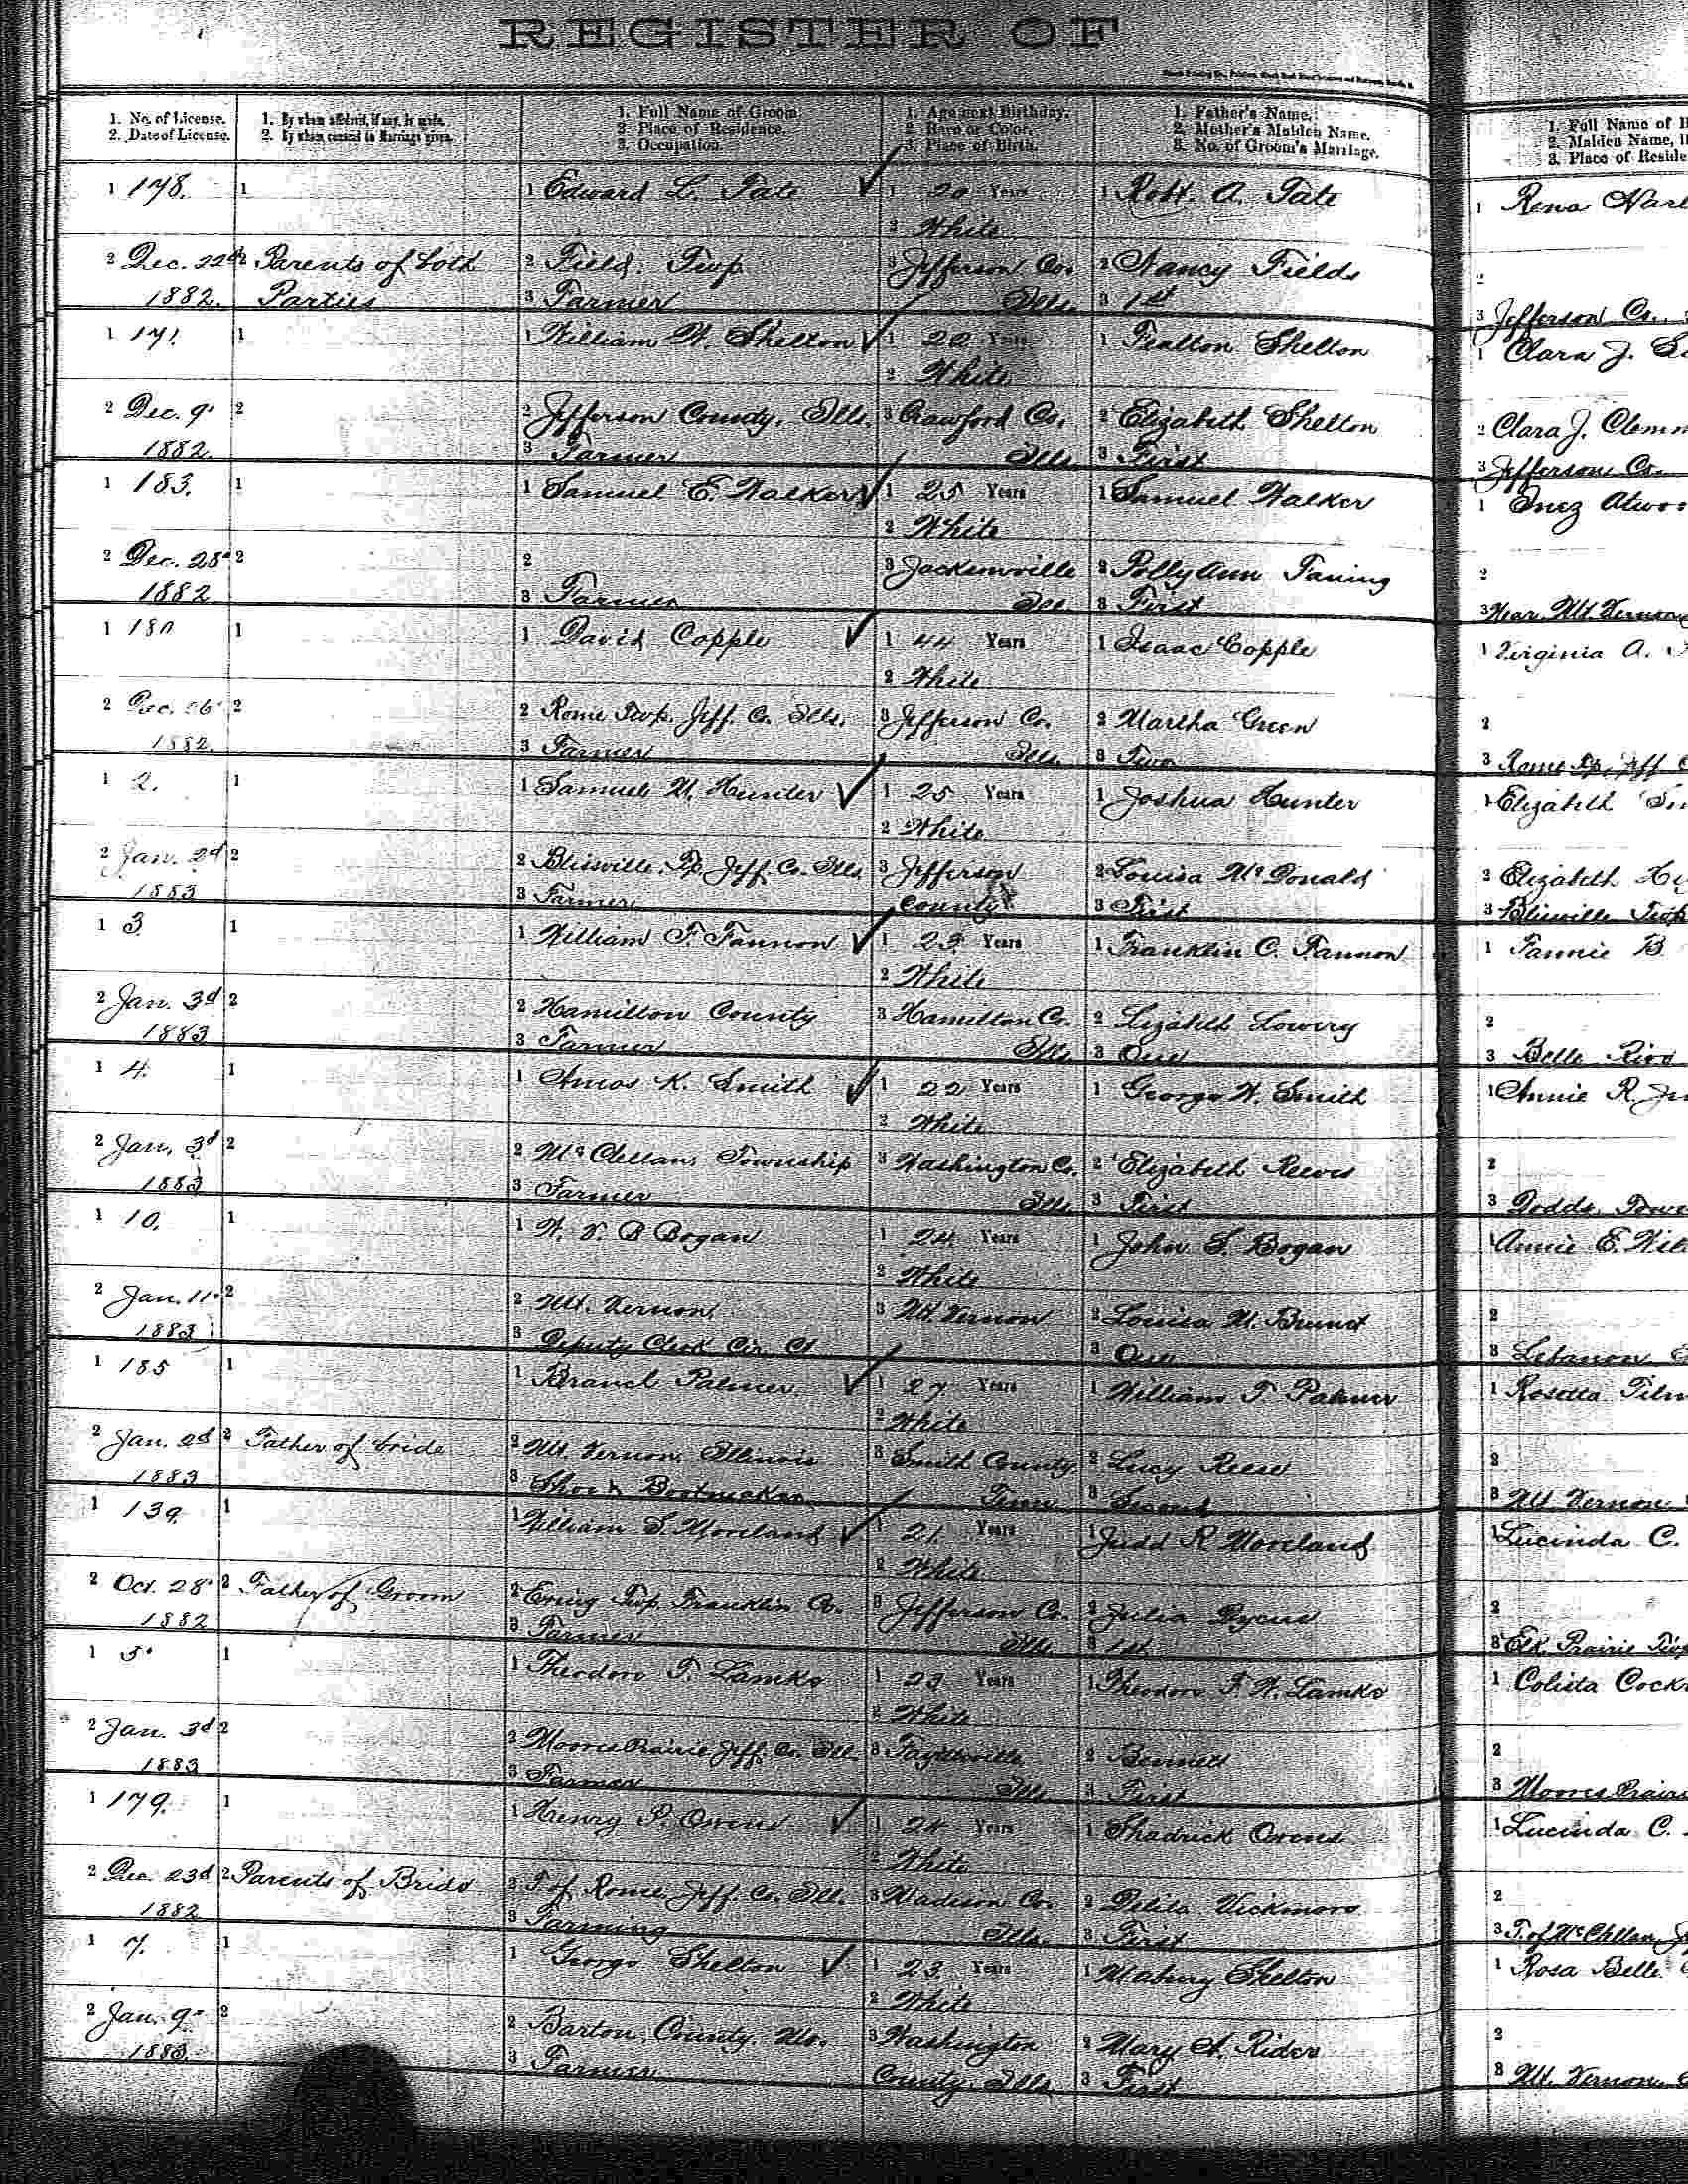 REGISTER OF
1. No. of License. 1. By whom affidavit, if any, is made. 1. Full Name of Groom. 1. Age next Birthday. 1. Father's Name.
2. Date of License. 2. By whom consent to Marriage given. 2. Place of Residence. 2. Race or Color. 2. Mother's Maiden Name.
3. Occupation. 3. Place of Birth. 3. No. of Groom's Marriage.
1. Full Name of
2. Maiden Name,
3. Place of Reside
1 178. 1 1 Edward L. Tate 1 20 Years 1 Robt. A. Tate 1 Rena
2 White
2 Dec. 22d 2 Parents of both 2 Field Twp 3 Jefferson Co. 2 Nancy Fields 2
1882. Parties 3 Farmer Ills. 3 1st 3 Jefferson Co.
1 171. 1 1 William W. Shelton 1 20 Years 1 Fealton Shelton 1 Clara J.
2 White
2 Dec. 9 2 2 Jefferson County, Ills. 3 Crawford Co. 2 Elizabeth Shelton 2 Clara J. Clemm
1882. 3 Farmer Ills. 3 First 3 Jefferson Co.
1 183. 1 1 Samuel E. Walker 1 25 Years 1 Samuel Walker 1 Inez Atwoo
2 White
2 Dec. 28 2 2 3 Jacksonville 2 Polly Ann 2
1882 3 Farmer Ill. 3 First 3 Near Mt. Vernon
1 180 1 1 David Copple 1 44 Years 1 Isaac Copple 1 Virginia A.
2 White
2 Dec. 26 2 2 Rome Twp. Jeff. Co. Ills. 3 Jefferson Co. 2 Martha Green 2
1882. 3 Farmer Ills. 3 Two 3 Rome Tp. Jeff
1 2. 1 1 Samuel M. Hunter 1 25 Years 1 Joshua Hunter 1 Elizabeth
2 White
2 Jan. 2d 2 2 Blissville Tp. Jeff. Co. Ills. 3 Jefferson 2 Louisa McDonald 2 Elizabeth
1883 3 Farmer County 3 First 3 Blissville Twp
1 3 1 1 William F. Fannon 1 23 Years 1 Franklin C. Fannon 1 Fannie B
2 White
2 Jan. 3d 2 2 Hamilton County 3 Hamilton Co. 2 Lizabeth Lowery 2
1883 3 Farmer Ills 3 One 3 Belle Rive
1 4. 1 1 Amos K. Smith 1 22 Years 1 George W. Smith 1 Annie R.
2 White
2 Jan. 3d 2 2 McClellan Township 3 Washington Co. 2 Elizabeth 2
1883 3 Farmer Ills. 3 First 3 Dodds
1 10. 1 1 W. V. B Bogan 1 24 Years 1 John S. Bogan 1 Annie E.
2 White
2 Jan. 11. 2 2 Mt. Vernon, 3 Mt. Vernon 2 Louisa M. 2
1883 3 Deputy Clerk Cir. Ct 3 One 3 Lebanon
1 185 1 1 Branch Palmer 1 27 Years 1 William T. Palmer 1 Rosetta
2 White
2 Jan. 2d 2 Father of bride 2 Mt. Vernon Illinois 3 Smith County 2 Lucy Reese 2
1883 3 Shoe & Bootmaker Tenn 3 Second 3 Mt Vernon
1 139. 1 1 William S. Moreland 1 21 Years 1 Judd R Moreland 1 Lucinda C.
2 White
2 Oct. 28 2 Father of Groom 2 Ewing Twp. Franklin Co. 3 Jefferson Co. 2 Julia Dycus 2
1882 3 Farmer Ills 3 1st 3 Elk Prairie Twp
1 5 1 1 Theodore F. Lamke 1 23 Years 1 Theodore F. W. Lamke 1
2 White
2 Jan. 3d 2 2 Moores Prairie Jeff. Co. Ill. 3 2 Bennett 2
1883 3 Farmer Ills 3 First 3 Moores Prairie
1 179. 1 1 Henry P. Owens 1 24 Years 1 Shadrick Owens 1 Lucinda C.
2 White
2 Dec. 23d 2 Parents of Bride 2 T. of Rome Jeff. Co. Ill. 3 Madison Co. 2 Delila 2
1882 3 Farming Ills. 3 First 3 T. of McClellan
1 7. 1 1 George Shelton 1 23 Years 1 Mabury Shelton 1 Rosa Belle
2 White
2 Jan. 9 2 2 Barton County, Mo. 3 Washington 2 Mary A. Rider 2
1883. 3 Farmer County, Ills 3 First 3 Mt. Vernon